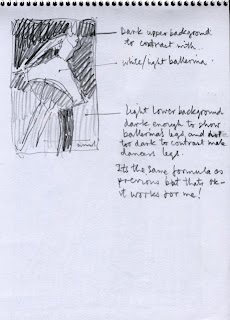 Dark upper background
to contrast with..
white/light ballerina.
Light lower background
dark enough to show
ballerina's legs, and not
too dark to contrast male
dancers legs.
Its the same formula as
previous but thats ok-
it works for me!